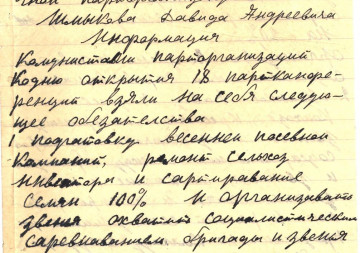 Шмыкова Давида Андреевича
Информация
Комунистами парторганизаций
Кодню открытия 18 партконфе-
ренций взяли на себя следую-
щее обезательства
1 подготовку весенней посевной
Кампаний, ремонт сельхоз
инвентора и сартирование
семян 100% и организавать
звеня охватить социалистическим
саревнаванием бригады и звеня